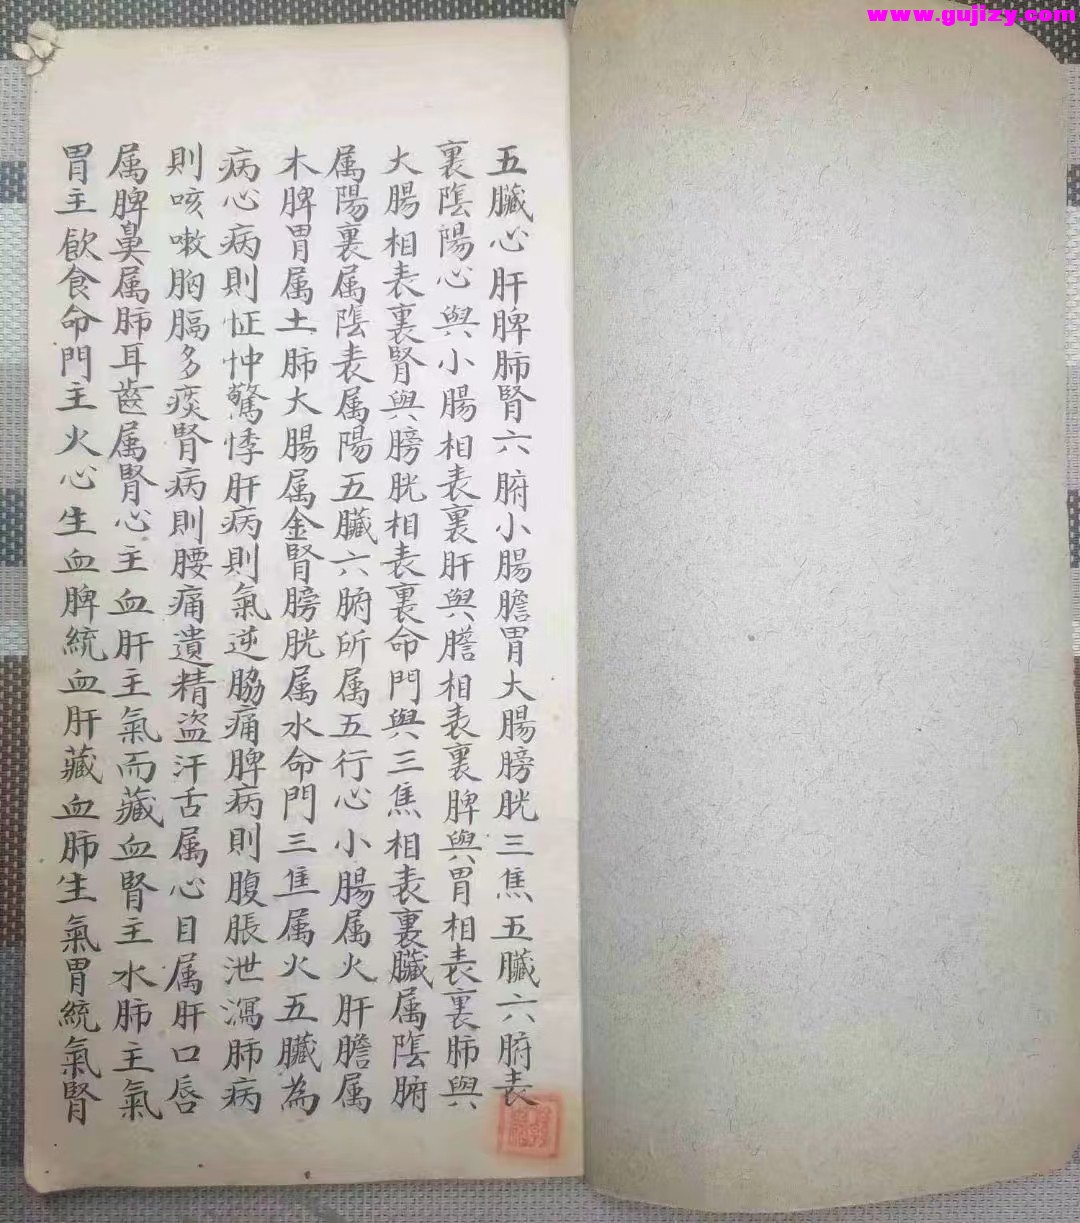 www.gujizy.com
五臟心肝脾肺腎六腑小腸膽胃大腸膀胱三焦五臟六腑表
裏陰陽心與小腸相表裏肝與膽相表裏脾與胃相表裏肺與
大腸相表裏腎與膀胱相表裏命門與三焦相表裏臟属陰腑
属陽裏属陰表属陽五臟六腑所属五行心小腸属火肝膽属
木脾胃属土肺大腸属金腎膀胱属水命門三焦属火五臟為
病心病則怔忡驚悸肝病則氣逆脇痛脾病則腹脹泄瀉肺病
則咳嗽胸膈多痰腎病則腰痛遺精盜汗舌属心目属肝口唇
属脾鼻属肺耳齒属腎心主血肝主氣而藏血腎主水肺主氣
胃主飲食命門主火心生血脾統血肝藏血肺生氣胃統氣腎